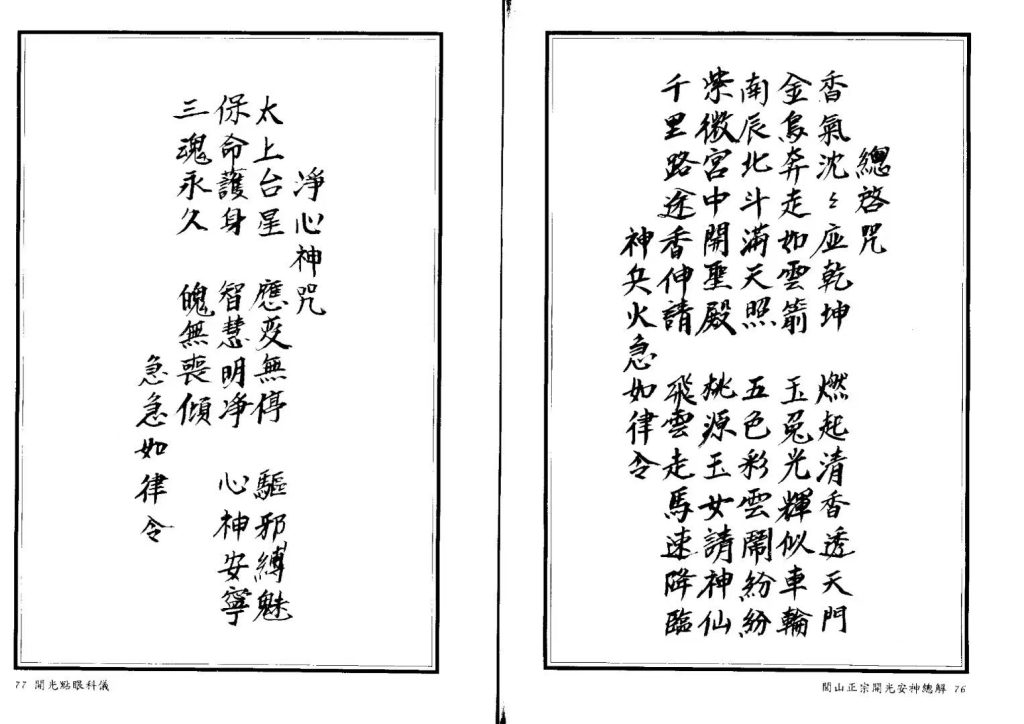 總啓咒
香氣沈々应乾坤 燃起清香透天門
金烏奔走如雲箭 玉兔光輝似車輪
南辰北斗滿天照 五色彩雲鬧紛紛
紫微宮中開聖殿 桃源玉女請神仙
千里路途香伸請 飛雲走馬速降臨
神兵火急如律令
閭山正宗開光安神總解 76
淨心神咒
太上台星 應变無停 驅邪縛魅
保命護身 智慧明净 心神安寧
三魂永久 魄無喪傾
急急如律令
77 開光點眼科儀